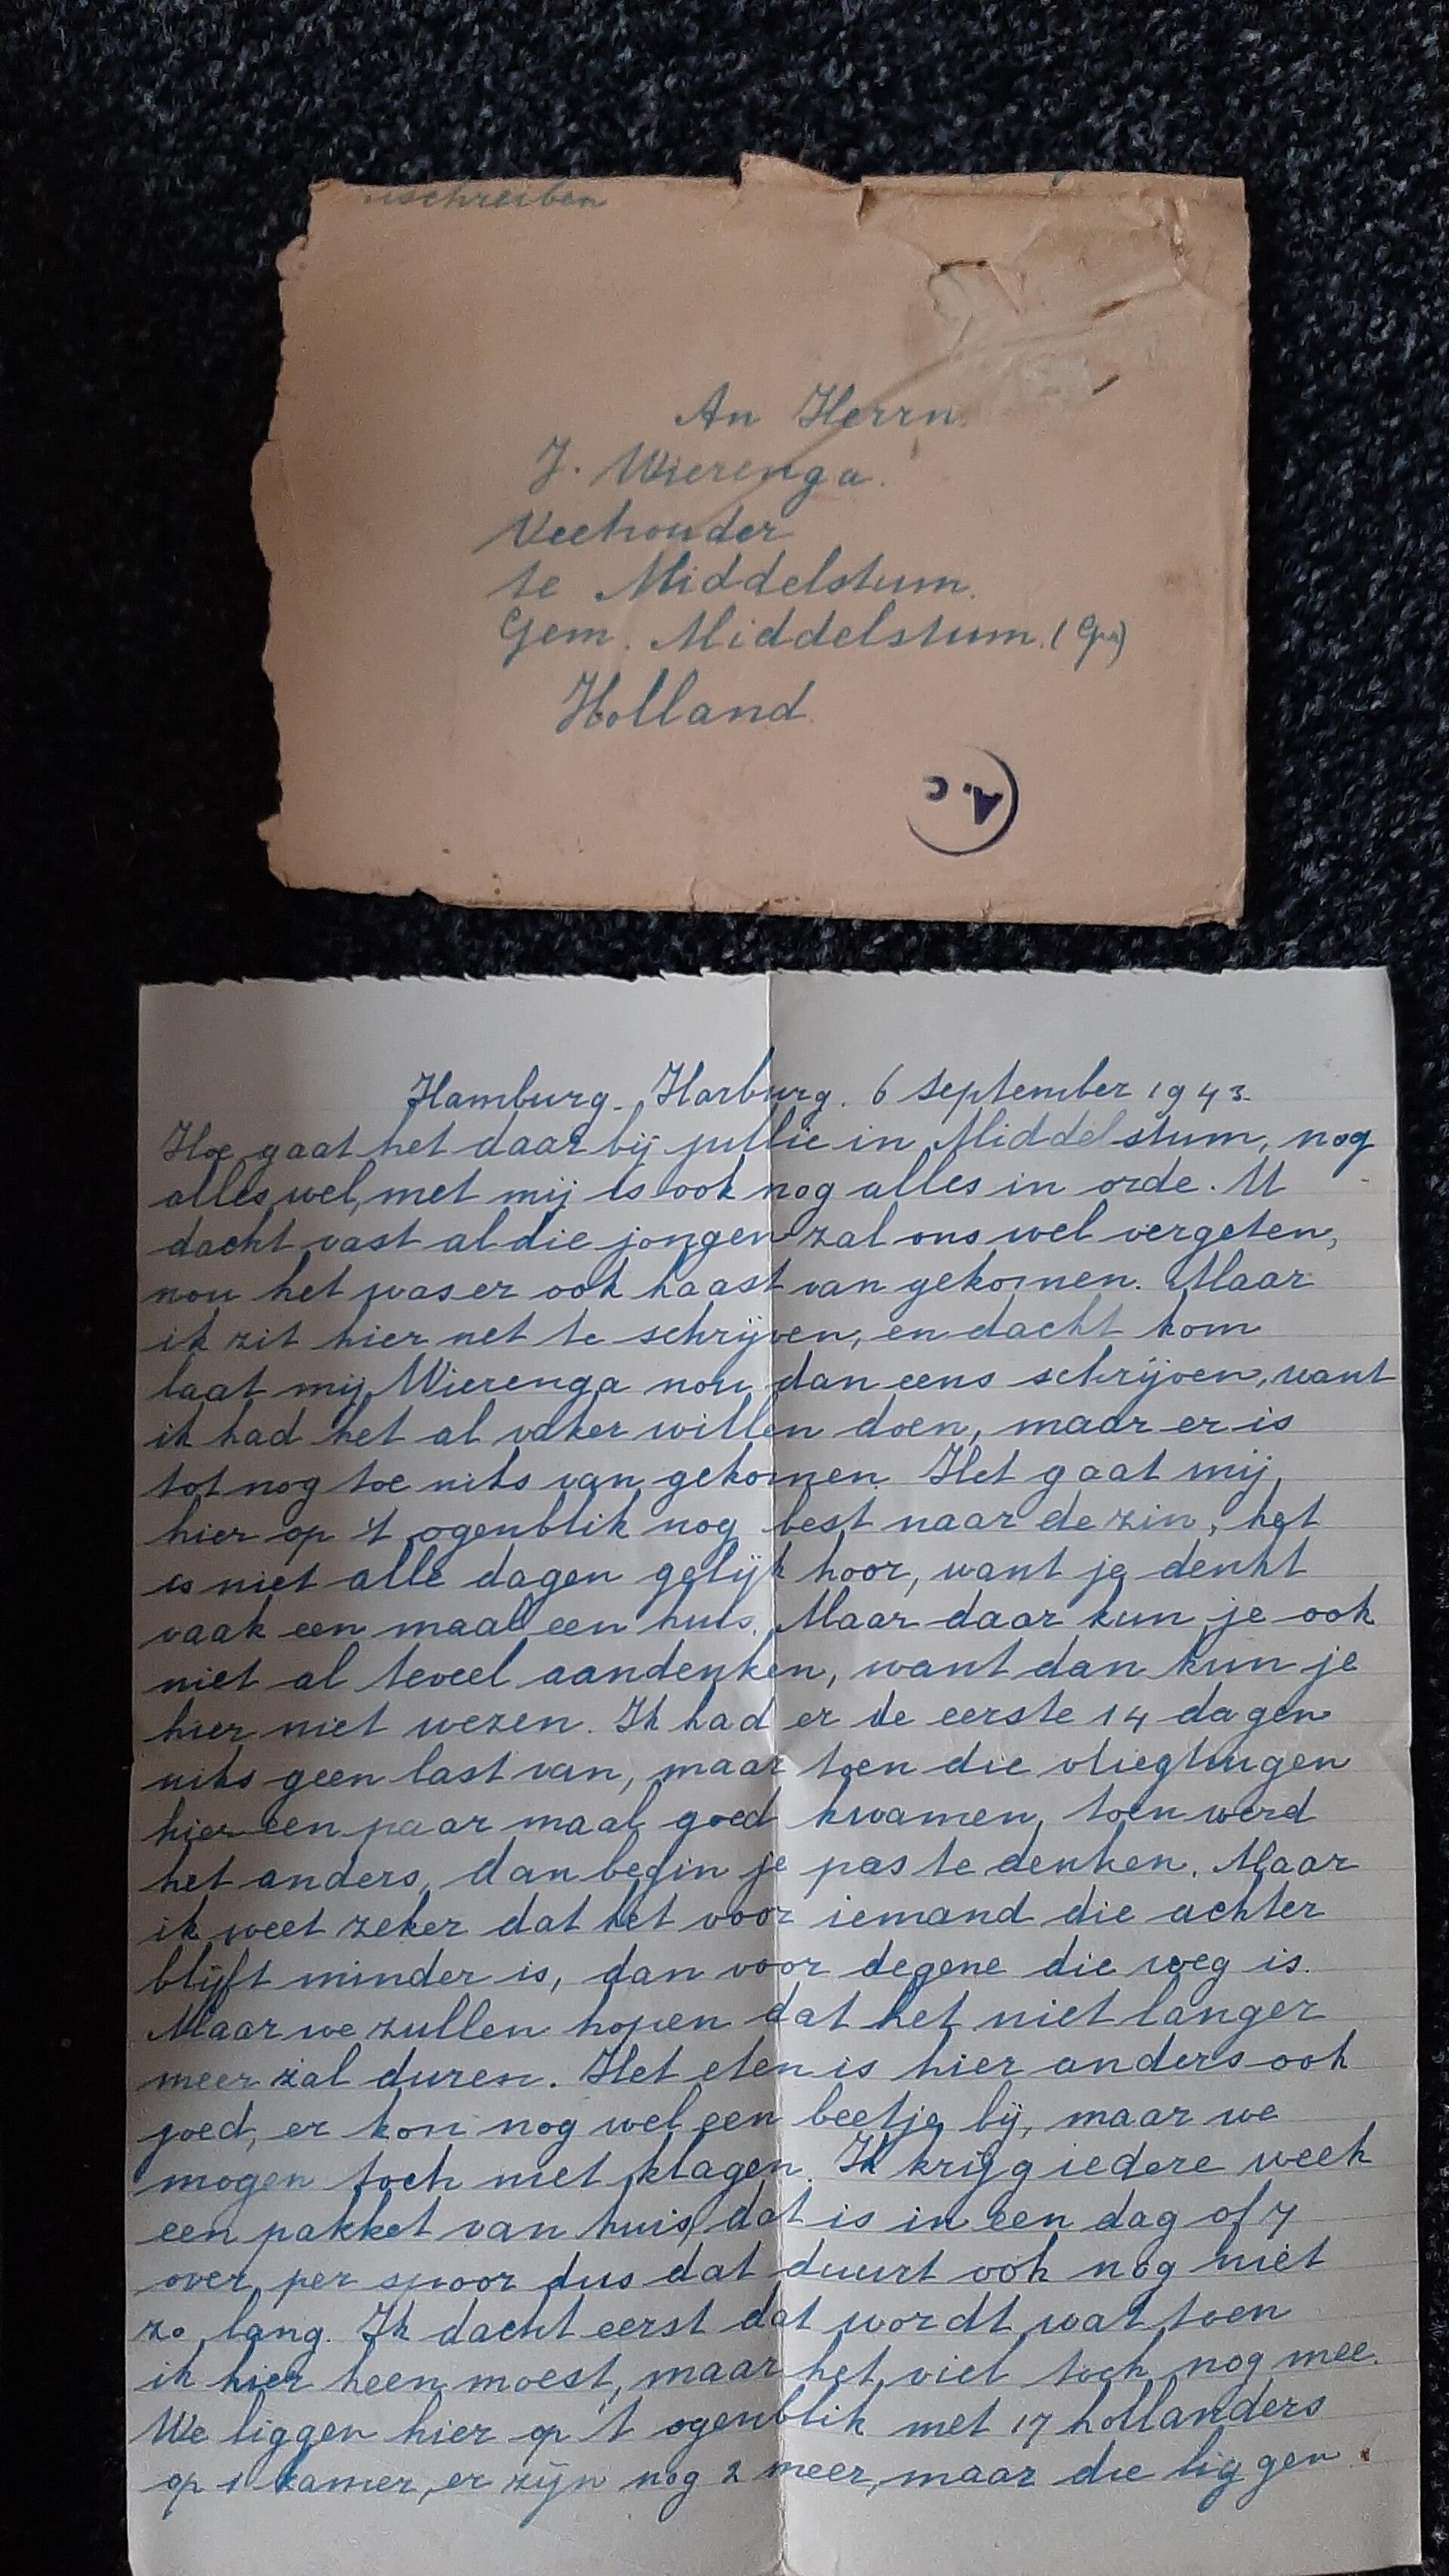 schreiben
An Herrn.
J. Wierenga.
Veehouder
te Middelstum.
Gem. Middelstum. (Gr.)
Holland.
A.C
Hamburg-Harburg. 6 september 1943.
Hoe gaat het daar bij jullie in Middelstum, nog
alles wel, met mij is ook nog alles in orde. U
dacht vast al die jongen zal ons wel vergeten,
nou het was er ook haast van gekomen. Maar
ik zit hier net te schrijven, en dacht kom
laat mij Wierenga nou dan eens schrijven, want
ik had het al vaker willen doen, maar er is
tot nog toe niks van gekomen. Het gaat mij
hier op 't ogenblik nog best naar de zin, het
is niet alle dagen gelijk hoor, want je denkt
vaak een maal een huis. Maar daar kun je ook
niet al teveel aandenken, want dan kun je
hier niet wezen. Ik had er de eerste 14 dagen
niks geen last van, maar toen die vliegtuigen
hier een paar maal goed kwamen, toen werd
het anders, dan begin je pas te denken. Maar
ik weet zeker dat het voor iemand die achter
blijft minder is, dan voor degene die weg is.
Maar we zullen hopen dat het niet langer
meer zal duren. Het eten is hier anders ook
goed, er kon nog wel een beetje bij, maar we
mogen toch niet klagen. Ik krijg iedere week
een pakket van huis, dat is in een dag of 7
over, per spoor dus dat duurt ook nog niet
zo lang. Ik dacht eerst dat wordt wat toen
ik hier heen moest, maar het viel toch nog mee.
We liggen hier op 't ogenblik met 17 hollanders
op 1 kamer, er zijn nog 2 meer, maar die liggen